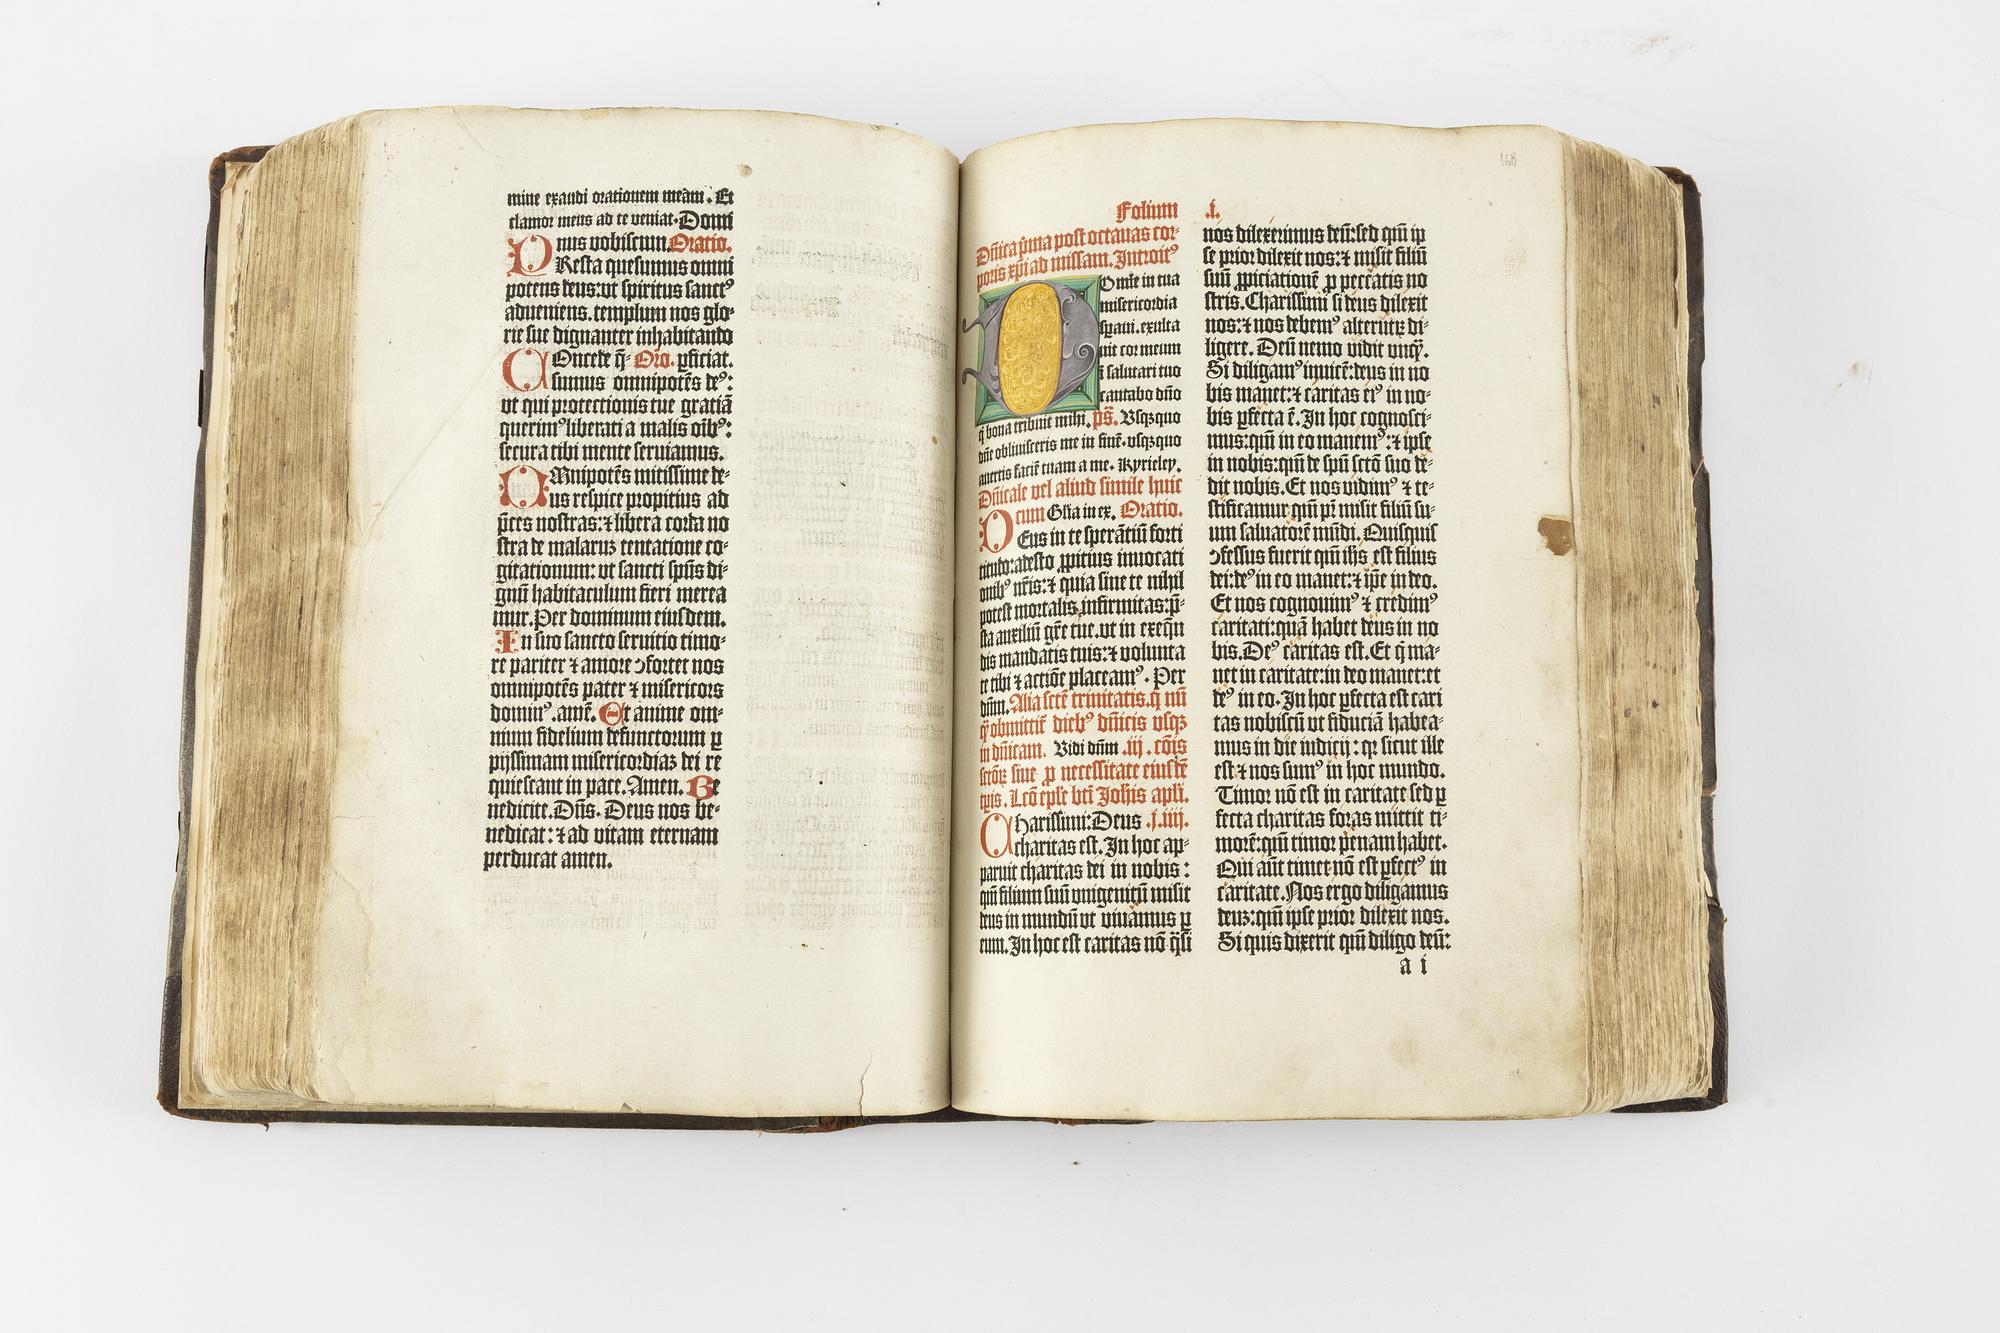 mine exaudi orationem meam. Et
clamor meus ad te veniat. Domi
nus vobiscum. Oratio.
PResta quesumus omni
potens deus: ut spiritus sanctꝰ
adueniens. templum nos glo⸗
rie sue dignanter inhabitando
COncede q̄⸗ Oro. ꝑficiat.
sumus omnipotēs deꝰ:
vt qui protectionis tue gratiā
querimꝰ liberati a malis oībꝰ:
secura tibi mente seruiamus.
OMnipotēs mitissime de⸗
us respice propitius ad
p̄ces nostras: ⁊ libera corda no
stra de malaruꝫ tentatione co⸗
gitationum: vt sancti spūs di⸗
gnū habitaculum fieri merea
mur. Per dominum eiusdem.
In suo sancto seruitio timo⸗
re pariter ⁊ amore ↄfortet nos
omnipotēs pater ⁊ misericors
dominꝰ. amē. Et anime om⸗
nium fidelium defunctorum ꝑ
pijssimam misericordiaꝫ dei re
quiescant in pace. Amen. Be
nedicite. Dn̄s. Deus nos be⸗
nedicat: ⁊ ad vitam eternam
perducat amen.
168
Folium .i.
Dn̄ica p̄ma post octauas cor⸗
poris xp̄i ad missam. Introitꝰ
DOmīe in tua
misericordia
speraui. exulta
uit cor meum
ī salutari tuo
cantabo dn̄o
q̄ bona tribuit mihi. p̄s. Vsqꝫquo
dn̄e obliuisceris me in finē. vsqꝫquo
auertis faciē tuam a me. Kyrieley.
Dn̄icale vel aliud simile huic
cum Glīa in ex. Oratio.
DEus in te sperātiū forti
titudo: adesto ꝓpitius inuocati
onibꝰ nr̄is: ⁊ quia sine te nihil
potest mortalis infirmitas: p̄⸗
sta auxiliū gr̄e tue. vt in exeqū
dis mandatis tuis: ⁊ volunta
te tibi ⁊ actiōe placeamꝰ. Per
dn̄m. Alia sctē trinitatis. q̄ nū
q̄ obmittit̄ diebꝰ dn̄icis vsqꝫ
in dn̄icam. Vidi dn̄m .iij. cōis
sctōꝝ siue ꝑ necessitate eiusdē
tꝑis. Lcō epl̄e bt̄i Joh̄is apl̄i.
CHarissimi: Deus .j.iiij.
charitas est. In hoc ap⸗
paruit charitas dei in nobis:
qm̄ filium suū vnigenitū misit
deus in mundū vt viuamus ꝑ
eum. In hoc est caritas nō q̄si
nos dilexerimus deū: sed qm̄ ip
se prior dilexit nos: ⁊ misit filiū
suū ꝓpiciationē ꝓ peccatis no
stris. Charissimi si deus dilexit
nos: ⁊ nos debemꝰ alterutꝝ di⸗
ligere. Deū nemo vidit vnqꝫ.
Si diligamꝰ inuicē: deus in no
bis manet: ⁊ caritas eiꝰ in no⸗
bis ꝑfecta ē. In hoc cognosci⸗
mus: qm̄ in eo manemꝰ: ⁊ ipse
in nobis: qm̄ de spū sctō suo de⸗
dit nobis. Et nos vidimꝰ ⁊ te⸗
stificamur qm̄ pr̄ misit filiū su⸗
um saluatorē mūdi. Quisquis
ↄfessus fuerit qm̄ ih̄s est filius
dei: deꝰ in eo manet: ⁊ ip̄e in deo.
Et nos cognouimꝰ ⁊ credimꝰ
caritati: quā habet deus in no
bis. Deꝰ caritas est. Et q̄ ma⸗
net in caritate: in deo manet: et
deꝰ in eo. In hoc ꝑfecta est cari
tas nobiscū vt fiduciā habea⸗
mus in die iudicij: qr sicut ille
est ⁊ nos sumꝰ in hoc mundo.
Timor nō est in caritate sed ꝑ
fecta charitas foras mittit ti⸗
morē: qm̄ timor penam habet.
Qui aūt timet nō est ꝑfectꝰ in
caritate. Nos ergo diligamus
deuꝫ: qm̄ ipse prior dilexit nos.
Si quis dixerit qm̄ diligo deū:
a i